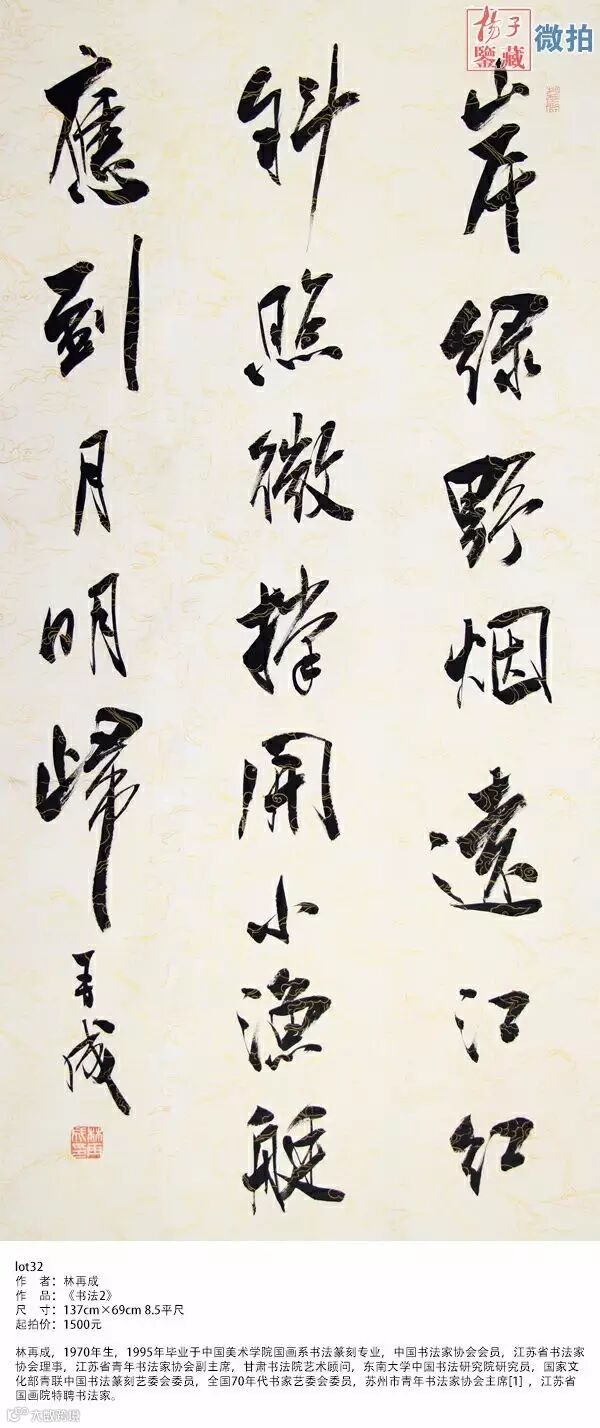 揚子
鑒藏
微拍
岸绿野烟遠江红
斜照微撑開小漁艇
應到月明歸
再成
lot32
作 者：林再成
作 品：《书法2》
尺 寸：137cm×69cm 8.5平尺
起拍价：1500元
林再成，1970年生，1995年毕业于中国美术学院国画系书法篆刻专业，中国书法家协会会员，江苏省书法家
协会理事，江苏省青年书法家协会副主席，甘肃书法院艺术顾问，东南大学中国书法研究院研究员，国家文
化部青联中国书法篆刻艺委会委员，全国70年代书家艺委会委员，苏州市青年书法家协会主席[1] ，江苏省
国画院特聘书法家。
大数跨境